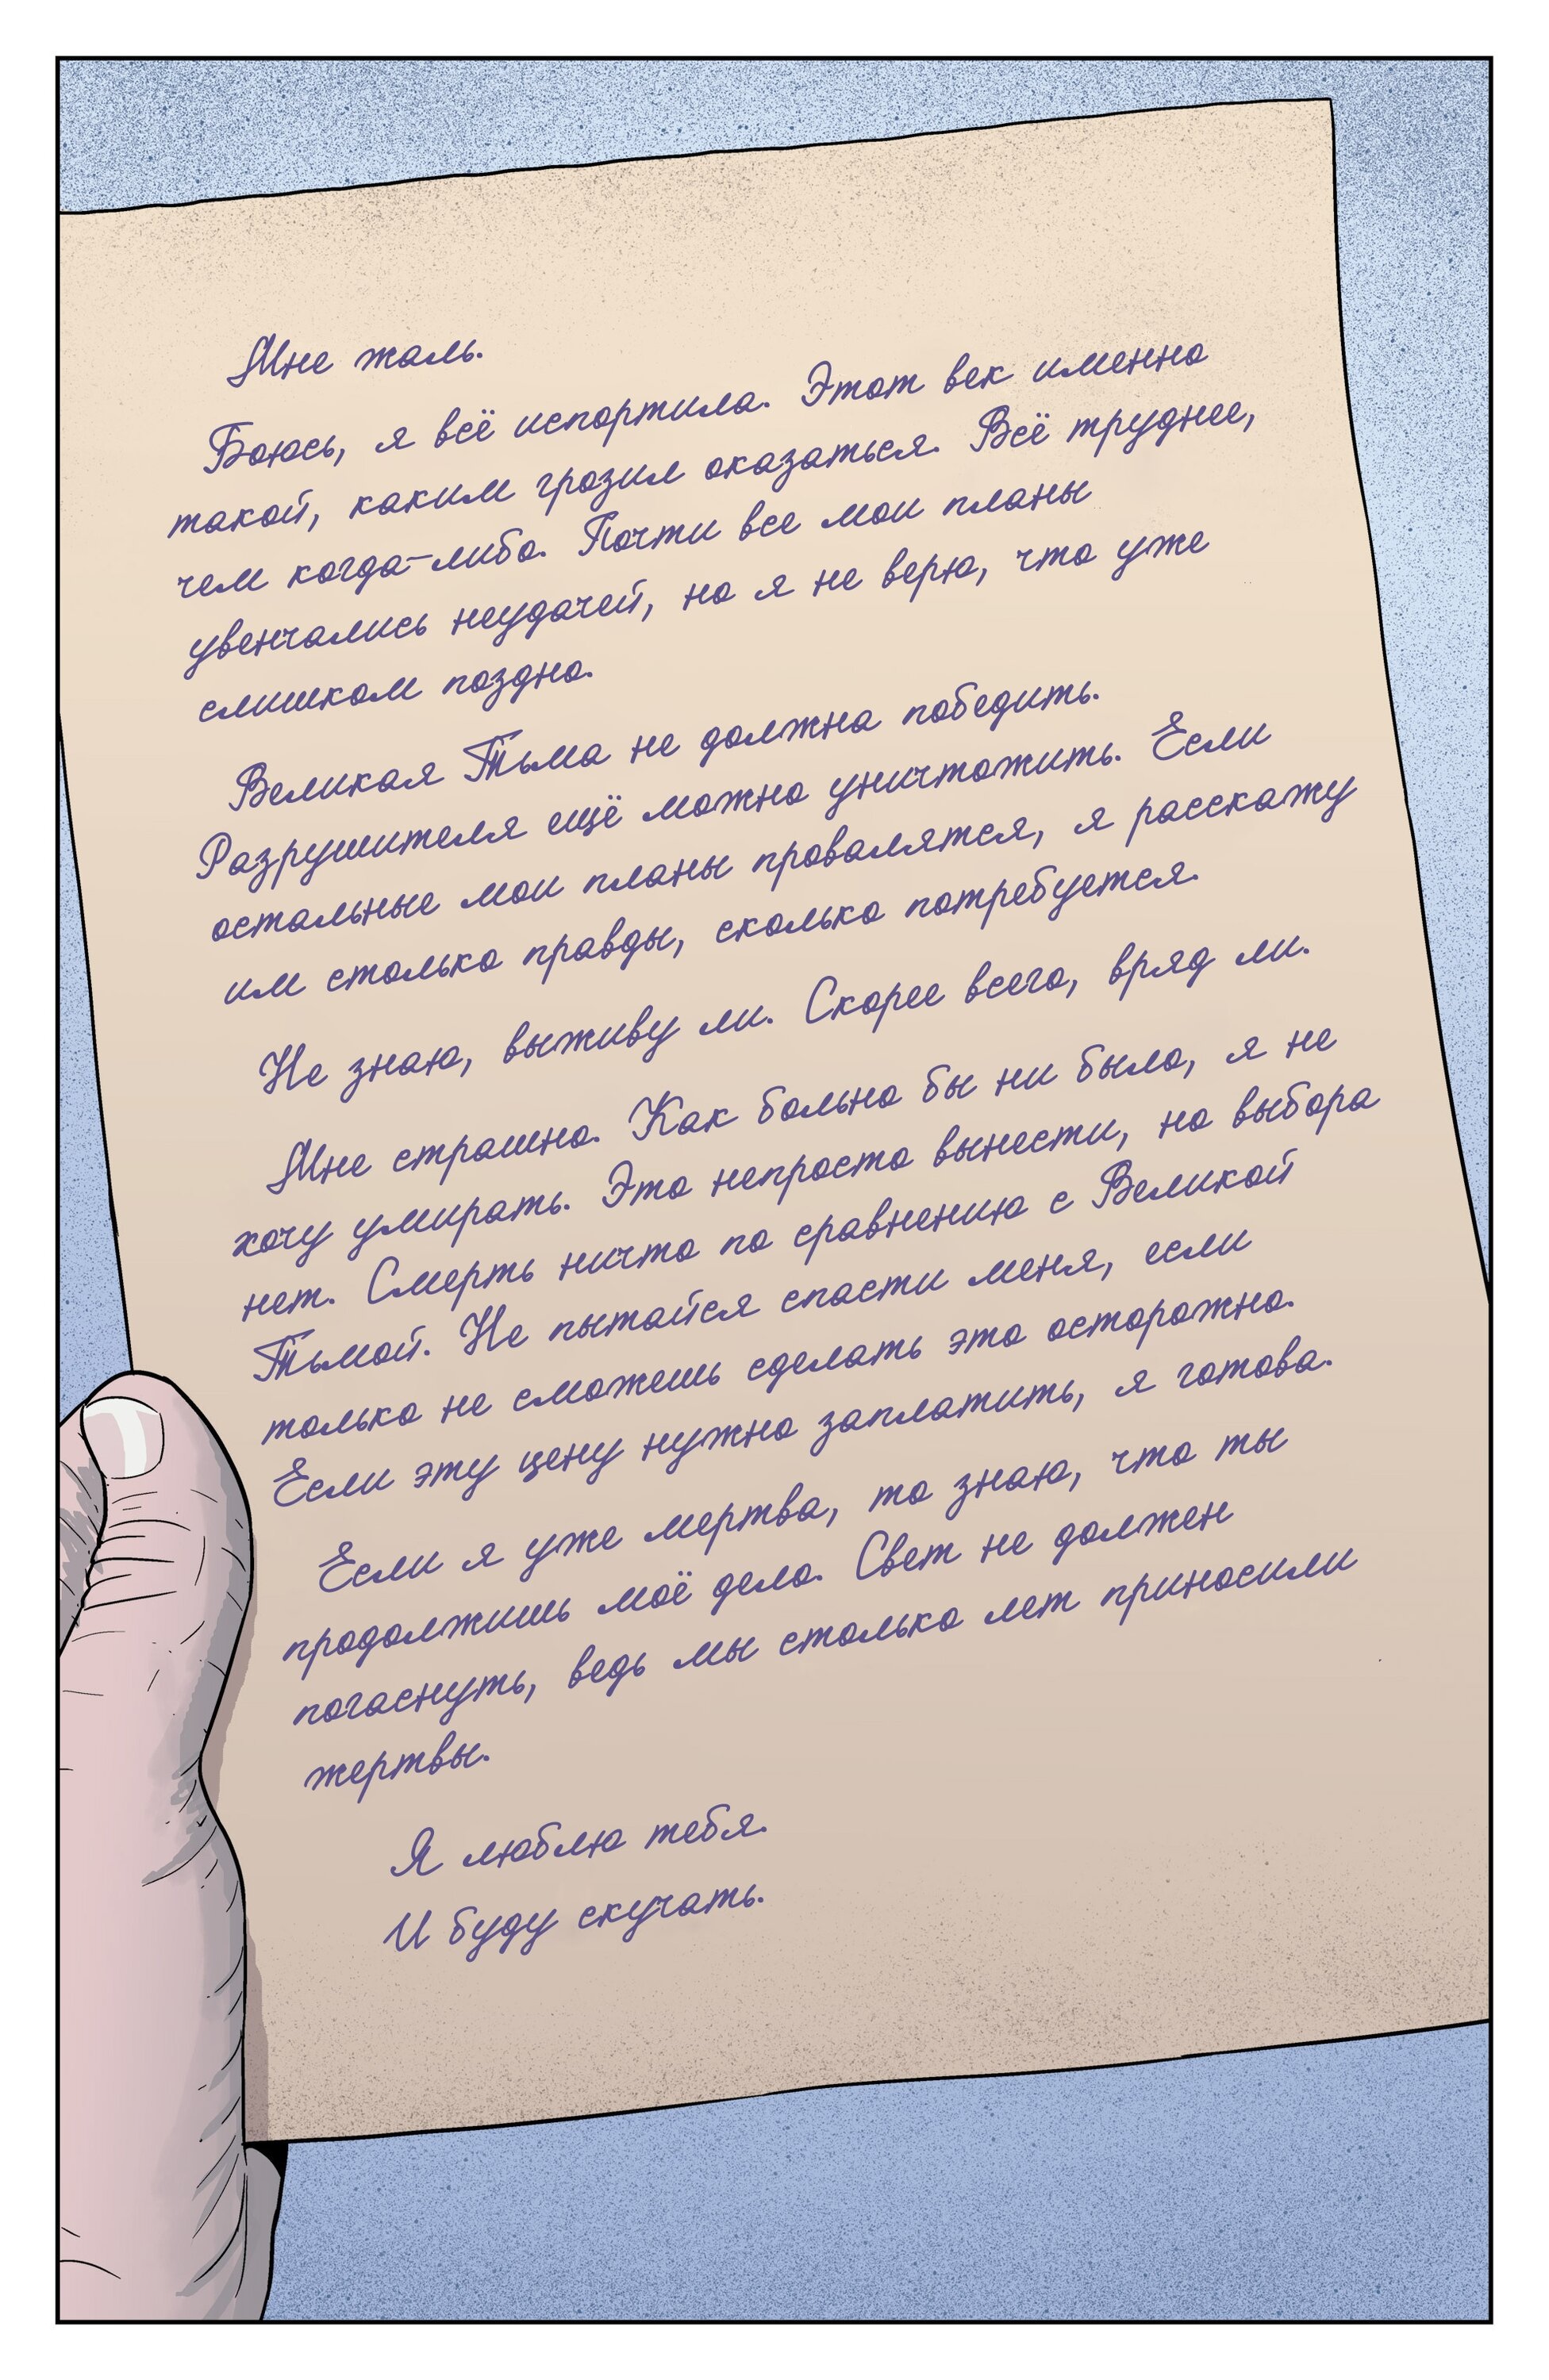 Мне жаль.
Боюсь, я всё испортила. Этот век именно
такой, каким грозил оказаться. Всё труднее,
чем когда-либо. Почти все мои планы
увенчались неудачей, но я не верю, что уже
слишком поздно.
Великая Тьма не должна победить.
Разрушителя ещё можно уничтожить. Если
остальные мои планы провалятся, я расскажу
им столько правды, сколько потребуется.
Не знаю, выживу ли. Скорее всего, вряд ли.
Мне страшно. Как больно бы ни было, я не
хочу умирать. Это непросто вынести, но выбора
нет. Смерть ничто по сравнению с Великой
Тьмой. Не пытайся спасти меня, если
только не сможешь сделать это осторожно.
Если эту цену нужно заплатить, я готова.
Если я уже мертва, то знаю, что ты
продолжишь моё дело. Свет не должен
погаснуть, ведь мы столько лет приносили
жертвы.
Я люблю тебя.
И буду скучать.